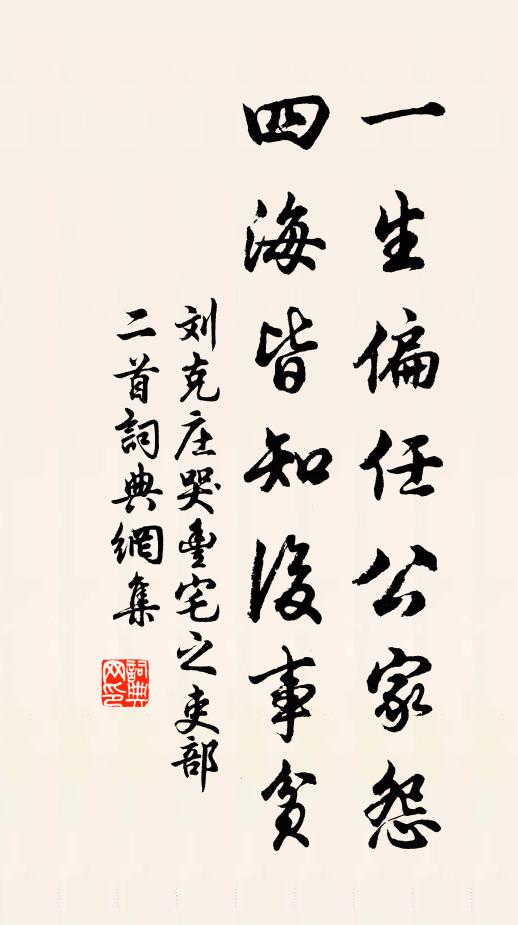 一生偏任公家怨
四海皆知後事貧
刘克庄哭豊宅之吏部
二首詞典網集
詞典网印